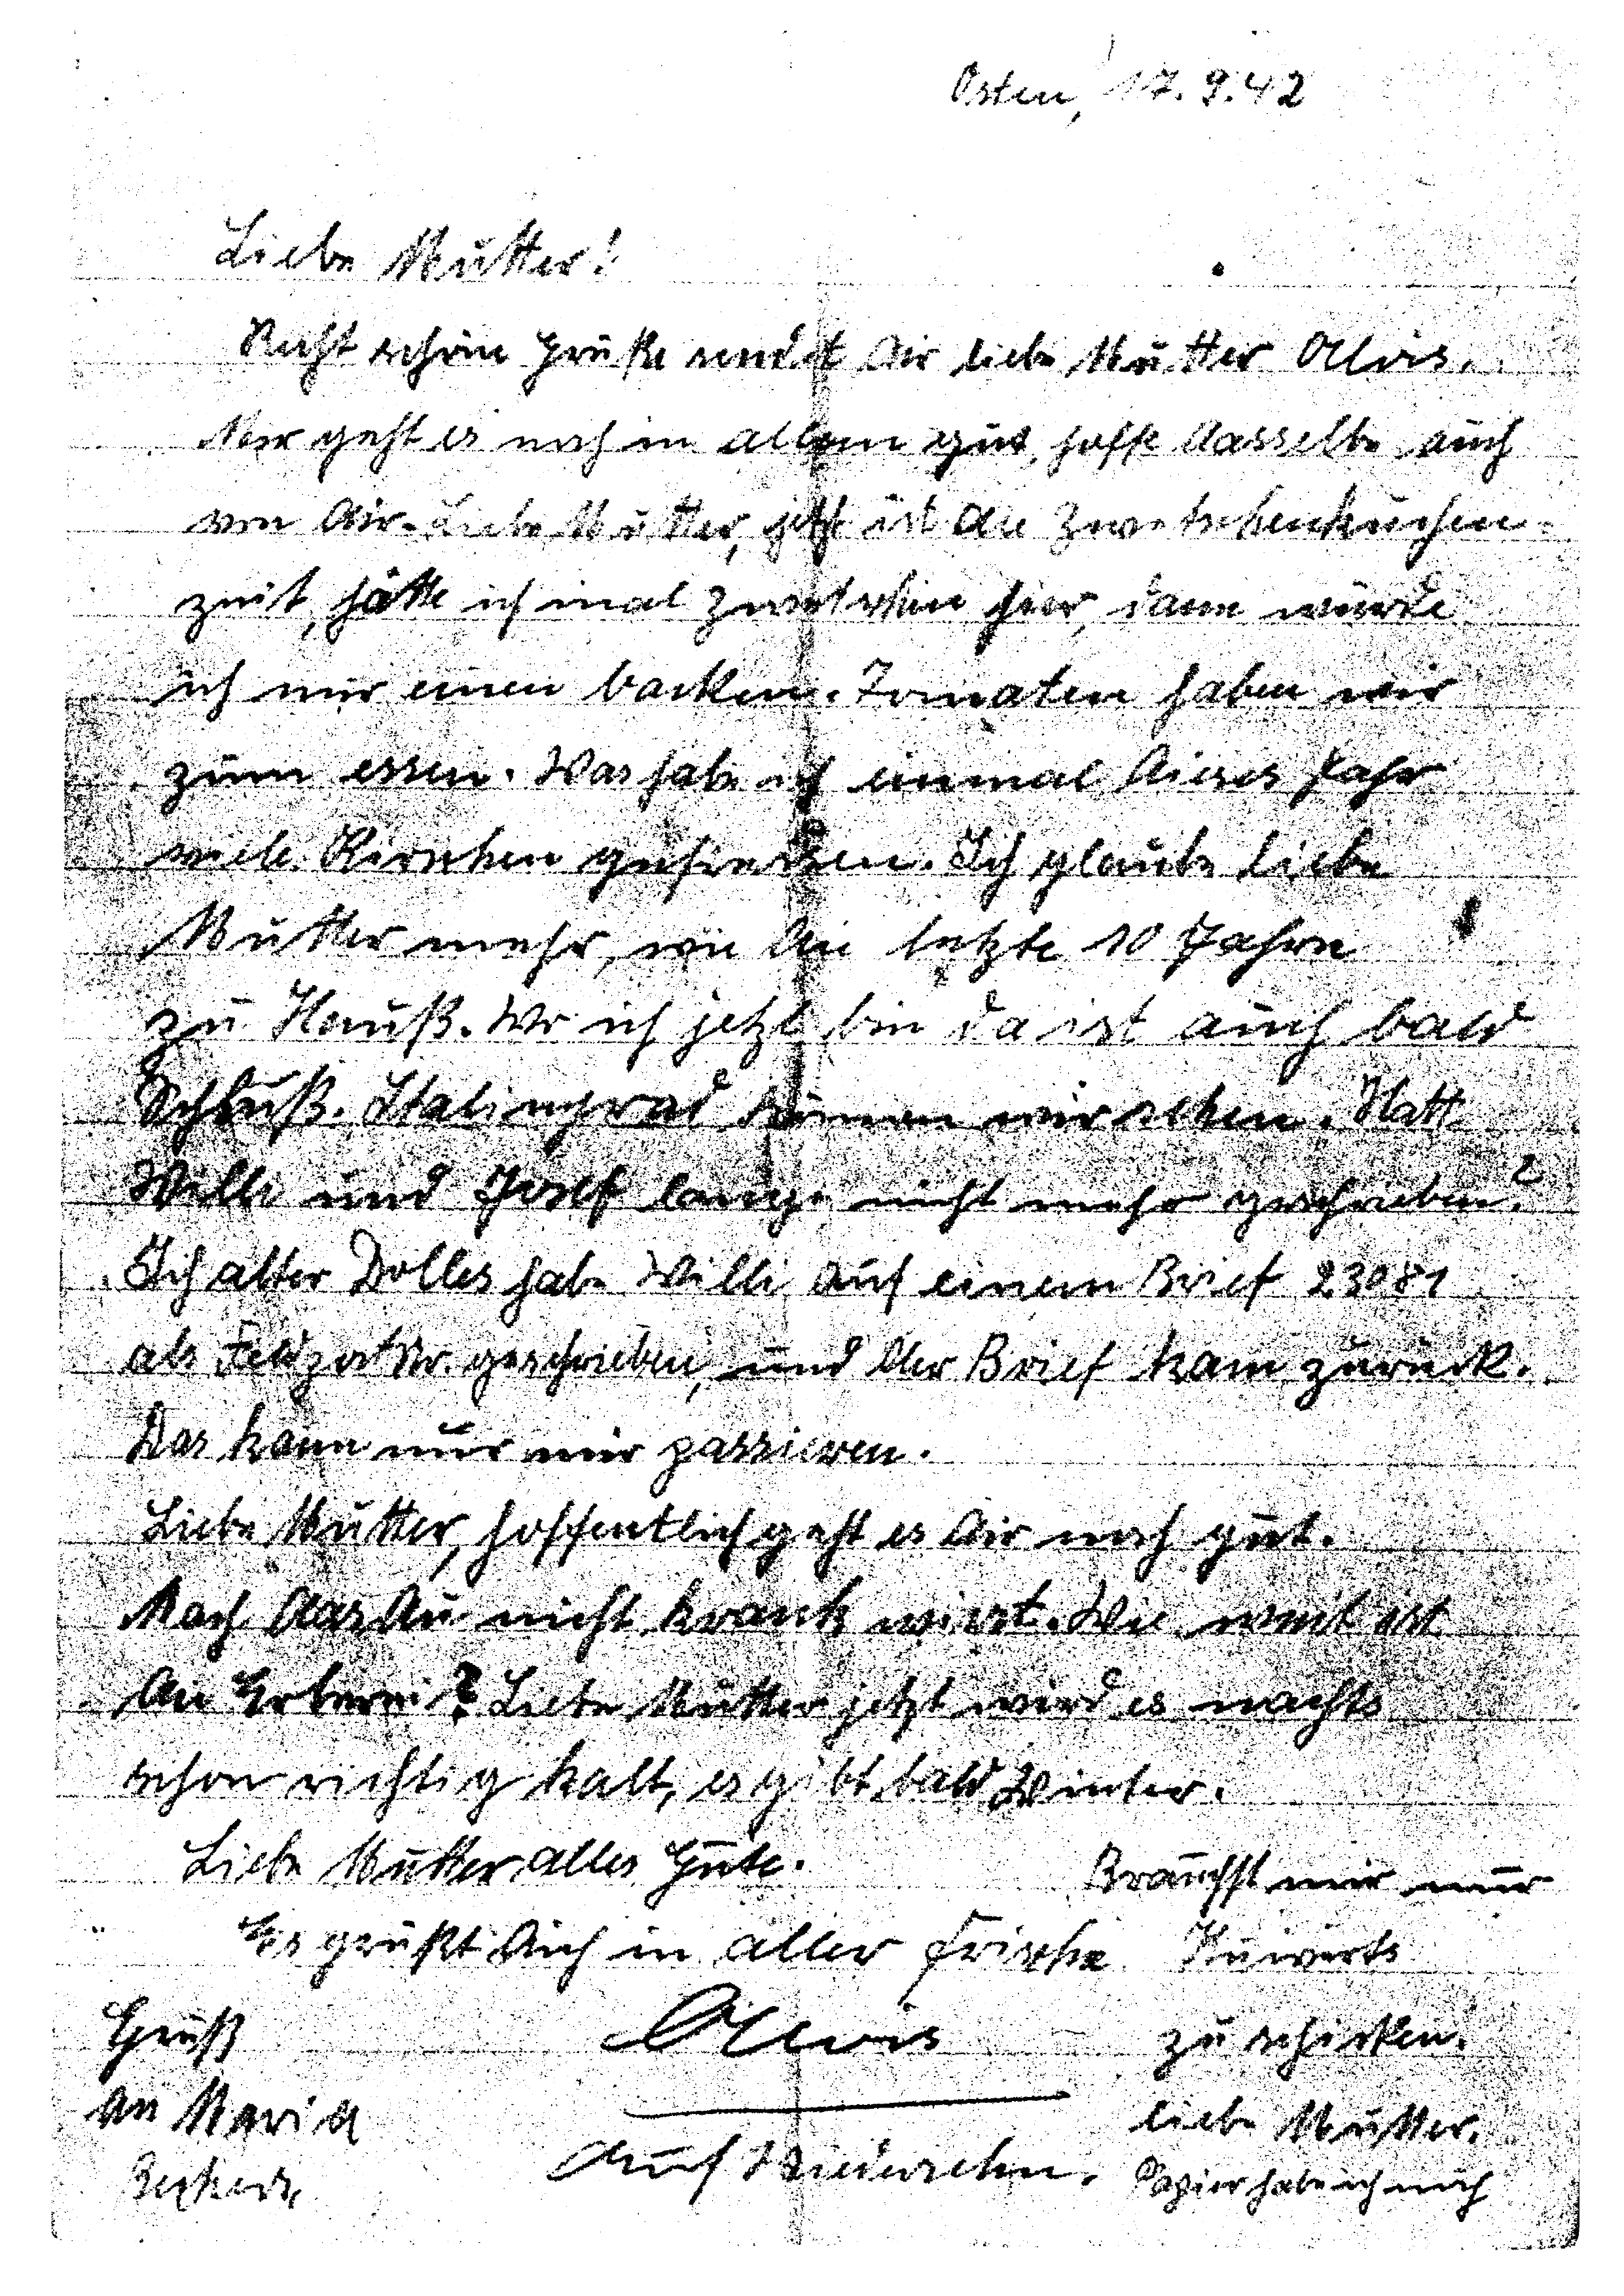 Osten, 17.9.42
Liebe Mutter!
Recht schöne Grüße sendet dir liebe Mutter Alois.
Mir geht es noch in allem gut, hoffe dasselbe auch
von dir. Liebe Mutter, jetzt ist die Zwetschenkuchen
zeit, hätte ich mal Zwetschen hier, dann würde
ich mir einen backen. Tomaten haben wir
zum essen. Was habe ich einmal dieses Jahr
viele Kirschen gefressen. Ich glaube liebe
Mutter mehr, wie die letzte 10 Jahre
zu Hauß. Wo ich jetzt bin da ist auch bald
Schluß. Stalingrad können wir sehen. Hatt
Willi und Josef lange nicht mehr geschrieben?
Ich alter Dolles habe Willi auf einem Brief 23081
als Feldpost Nr. geschrieben, und der Brief kam zurück.
Das kann nur mir passieren.
Liebe Mutter, hoffentlich geht es dir noch gut.
Mach das du nicht krank wirst. Wie weit ist
die? Liebe Mutter jetzt wird es nachts
schon richtig kalt, es gibt bald Winter.
Liebe Mutter alles Gute.
Brauchst mir nur
Es grüßt dich in aller Frische Kuwerts
Gruß
Alois
zu schicken.
an Maria
liebe Mutter.
Auf Wiedersehn.
Papier habe ich noch